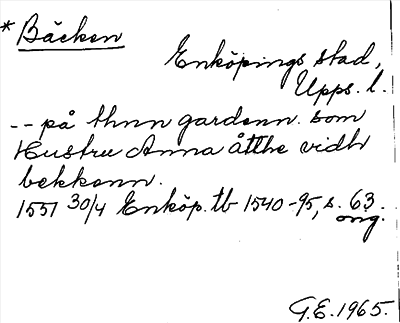 * Bäcken
Enköpings stad,
Upps. l.
-- på thnn gardenn som
Hustru Anna åtthe vidh
bekkenn.
1551 30/4 Enköp. tb 1540-95, s. 63.
orig.
G.E. 1965.